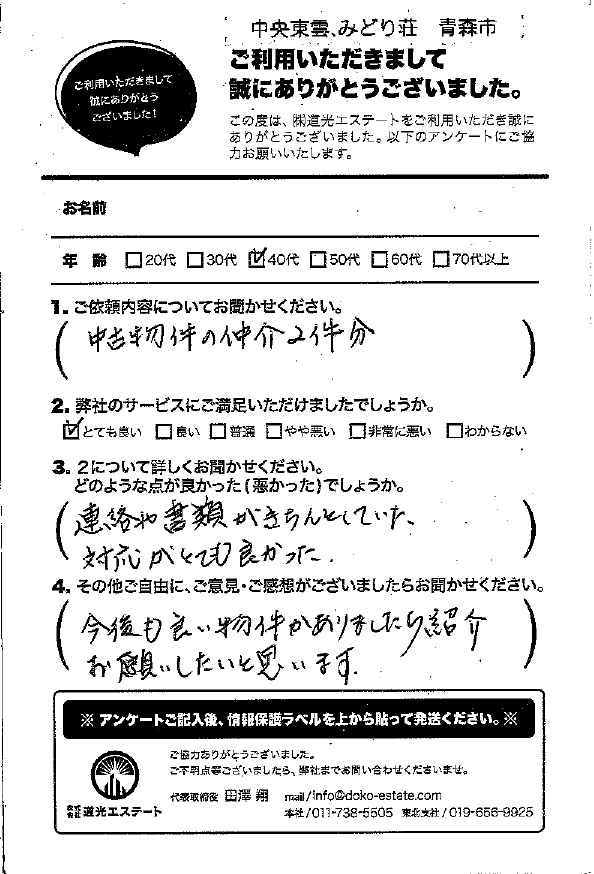 中央東雲、みどり荘　青森市
ご利用いただきまして
誠にありがとう
ございました!
ご利用いただきまして
誠にありがとうございました。
この度は、㈱道光エステートをご利用いただき誠に
ありがとうございました。以下のアンケートにご協
力お願いいたします。
お名前
年 齢 □20代 □30代 ☑40代 □50代 □60代 □70代以上
1. ご依頼内容についてお聞かせください。
(中古物件の仲介2件分)
2. 弊社のサービスにご満足いただけましたでしょうか。
☑とても良い □良い □普通 □やや悪い □非常に悪い □わからない
3. 2について詳しくお聞かせください。
どのような点が良かった(悪かった)でしょうか。
(連絡や書類がきちんとしていた、
対応がとても良かった.)
4. その他ご自由に、ご意見・ご感想がございましたらお聞かせください。
(今後も良い物件がありましたら紹介
お願いしたいと思います.)
※ アンケートご記入後、情報保護ラベルを上から貼って発送ください。※
ご協力ありがとうございました。
ご不明点等ございましたら、弊社までお問い合わせくださいませ。
代表取締役 田澤 翔 mail/info@doko-estate.com
株式会社 道光エステート
本社/011-738-5505 東北支社/019-656-9925